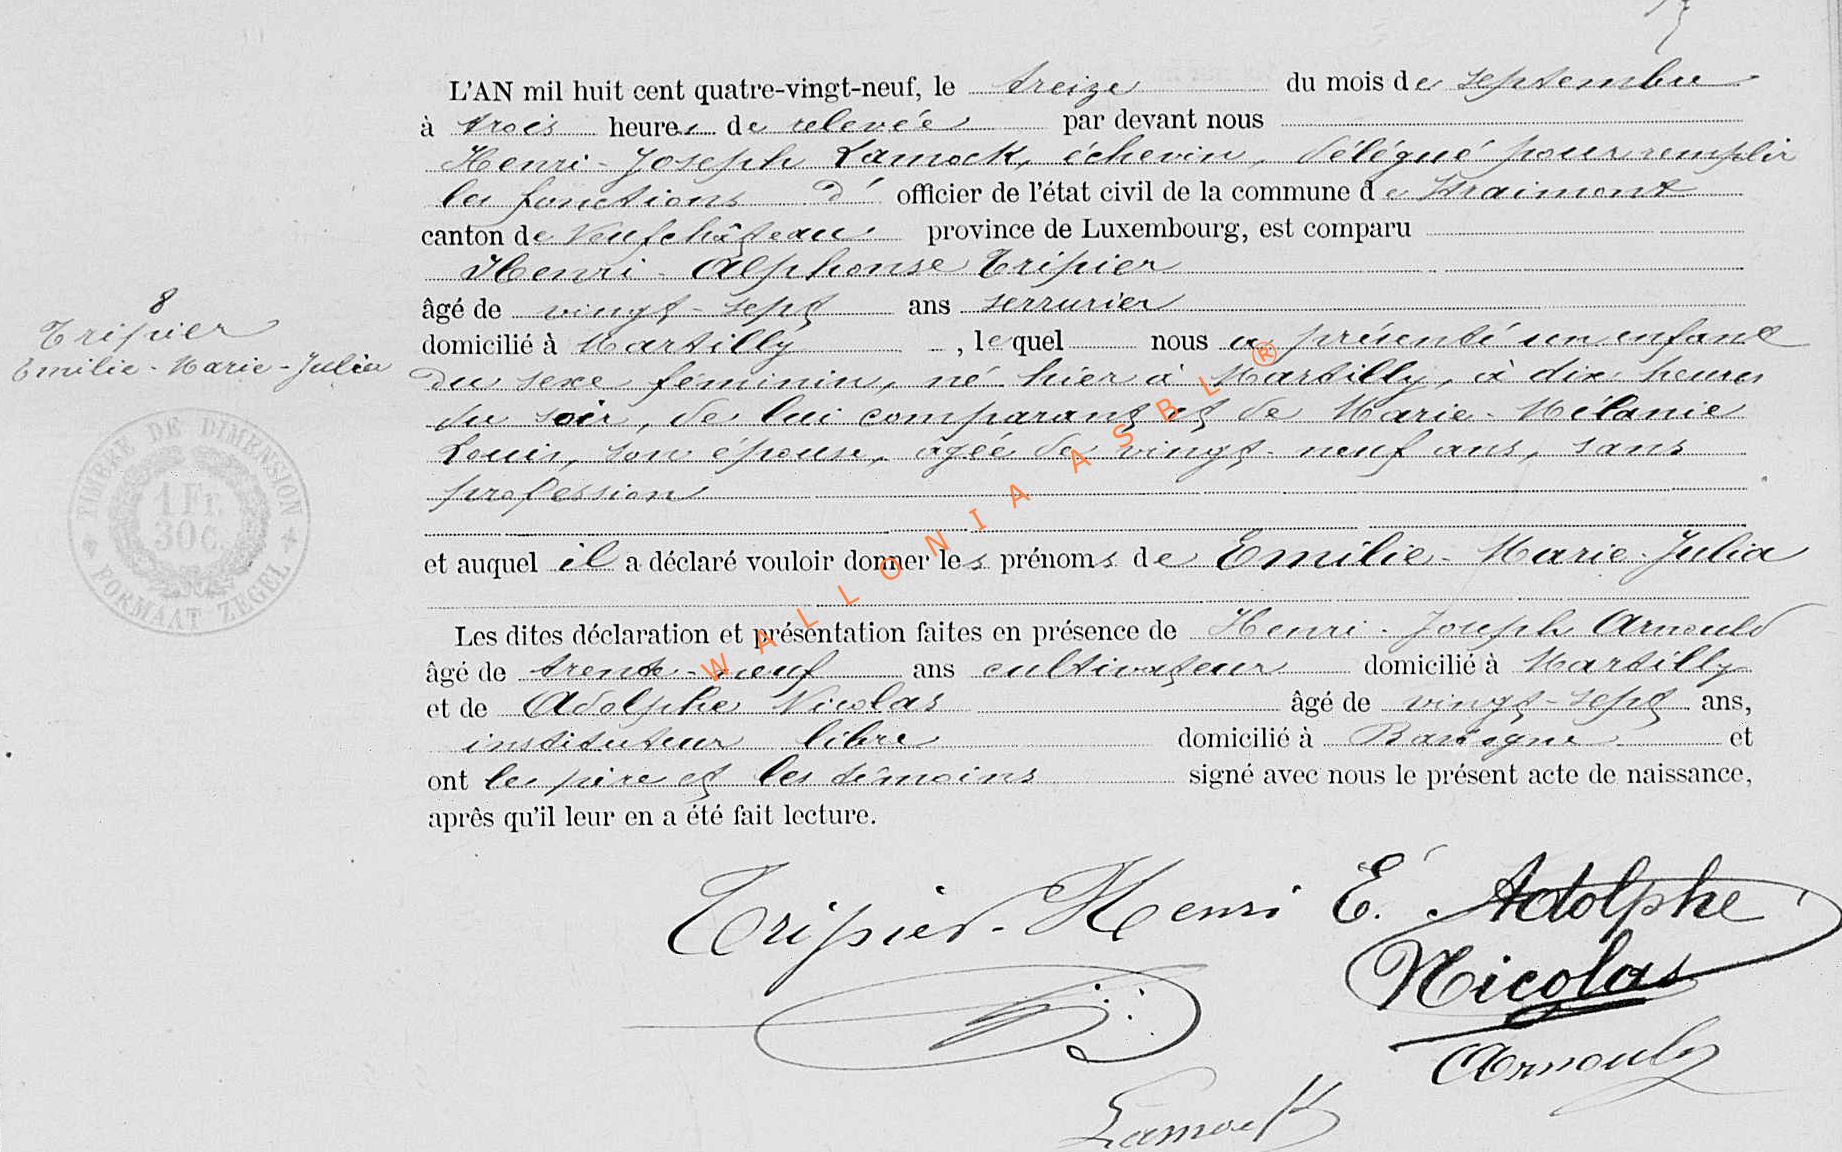 L'AN mil huit cent quatre-vingt-neuf, le treize du mois de septembre
à trois heures de relevée par devant nous
Henri-Joseph Lamock, échevin, délégué pour remplir
les fonctions d' officier de l'état civil de la commune de Straimont
canton de Neufchâteau province de Luxembourg, est comparu
Henri-Alphonse Tripier
âgé de vingt-sept ans serrurier
8
Tripier
Emilie-Marie-Julia
domicilié à Martilly, lequel nous a présenté un enfant
du sexe féminin, né hier à Martilly, à dix heures
du soir, de lui comparant et de Marie-Mélanie
Louis, son épouse, agée de vingt-neuf ans, sans
profession
et auquel il a déclaré vouloir donner les prénoms de Emilie-Marie-Julia
Les dites déclaration et présentation faites en présence de Henri-Joseph Arnould
âgé de trente-neuf ans cultivateur domicilié à Martilly
et de Adolphe Nicolas âgé de vingt-sept ans,
instituteur libre domicilié à et
ont le père et les témoins signé avec nous le présent acte de naissance,
après qu'il leur en a été fait lecture.
TIMBRE DE DIMENSION
1 Fr.
30 c.
FORMAAT ZEGEL
WALLONIA ASBL ®
Tripier-Henri É. Adolphe
Nicolas
Arnould
Lamock